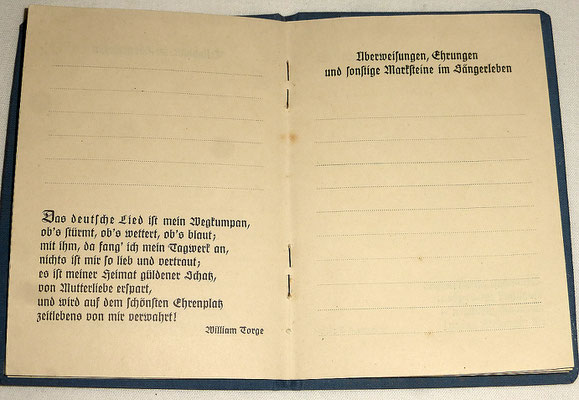 Das deutsche Lied ist mein Wegkumpan,
ob's stürmt, ob's wettert, ob's blaut;
mit ihm, da fang' ich mein Tagwerk an,
nichts ist mir so lieb und vertraut;
es ist meiner Heimat güldener Schatz,
von Mutterliebe erspart,
und wird auf dem schönsten Ehrenplatz
zeitlebens von mir verwahrt!
William Torge
Überweisungen, Ehrungen
und sonstige Marksteine im Sängerleben